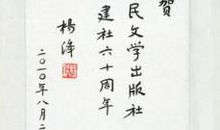 贺
民文学出版社
建社六十周年
杨绛
二〇一〇年八月二